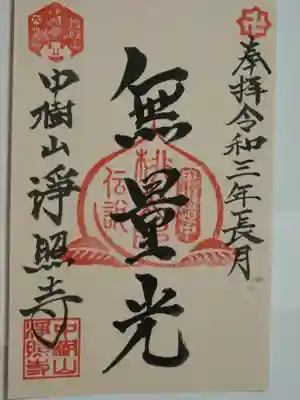 奉拝令和三年長月
無量光
中樹山淨照寺
桃
伝説
中樹山
淨照寺